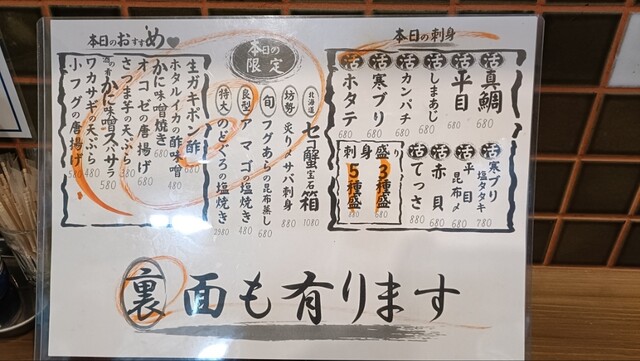 本日の刺身
活 真鯛 680
活 平目 680
活 しまあじ 680
活 カンパチ 680
活 寒ブリ 680
活 ホタテ 680
活 寒ブリ 塩タタキ 780
活 平目 昆布〆 680
活 赤貝 680
活 てっさ 880
刺身盛り
3種盛 680
5種盛 880
本日の限定
北海道 セコ蟹宝石箱 1080
坊勢 炙り〆サバ刺身 880
旬 フグあらの昆布蒸し 680
良型 アマゴの塩焼き 480
特大 のどぐろの塩焼き 2980
本日のおすすめ
生ガキポン酢 680
ホタルイカの酢味噌 480
かに味噌焼き 680
オコゼの唐揚げ 580
さつま芋の天ぷら 380
かに味噌スペサラ 580
ワカサギの天ぷら 480
小フグの唐揚げ 680
裏面も有ります